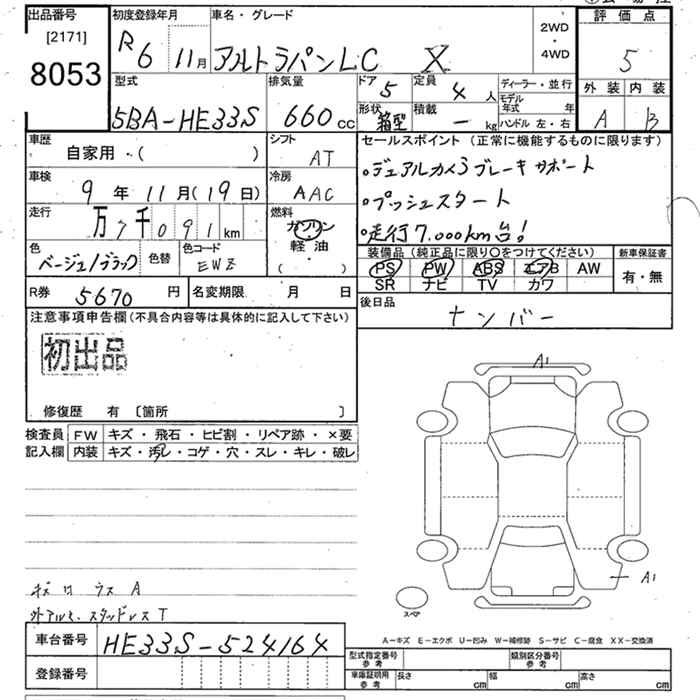 出品番号
[2171]
8053
初度登録年月
R6 11月
車名・グレード
アルトラパンLC X
2WD
・
4WD
評価点
5
外装 内装
A B
型式
5BA-HE33S
排気量
660 cc
ドア
5
定員
4 人
形状
箱型
積載
- kg
ディーラー・並行
モデル年式 年
ハンドル 左・右
車歴
自家用・( )
シフト
AT
車検
9年 11月(19日)
冷房
AAC
走行
万7千091km
燃料
ガソリン
・
軽油
( ・ )
色
ベージュ/ブラック
色替
色コード
EWZ
R券 5670 円
名変期限 月 日
セールスポイント(正常に機能するものに限ります)
・デュアルカメラブレーキサポート
・プッシュスタート
・走行7,000km台!
装備品(純正品に限り○をつけてください)
PS PW ABS エアB AW
SR ナビ TV カワ
新車保証書
有・無
後日品
ナンバー
注意事項申告欄(不具合内容等は具体的に記入して下さい)
初出品
修復歴 有 〔箇所 〕
検査員記入欄
FW キズ・飛石・ヒビ割・リペア跡・×要
内装 キズ・汚レ・コゲ・穴・スレ・キレ・破レ
A1
A1
スペア
外アルミ、スタッドレスT
車台番号 HE33S-524164
登録番号
A-キズ E-エクボ U-凹み W-補修跡 S-サビ C-腐食 XX-交換済
型式指定番号
参考
類別区分番号
参考
車庫証明用
参考
長さ cm 幅 cm 高さ cm